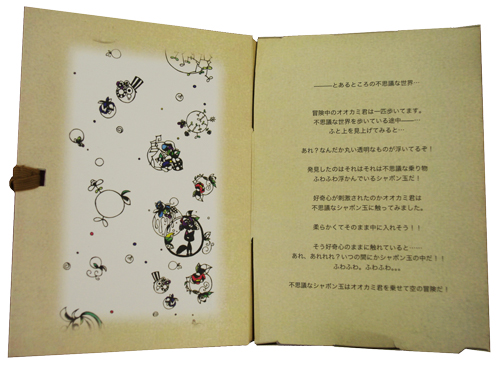 ―――とあるところの不思議な世界…
冒険中のオオカミ君は一匹歩いてます。
不思議な世界を歩いている途中―――
ふと上を見上げてみると…
あれ？なんだか丸い透明なものが浮いてるぞ！
発見したのはそれはそれは不思議な乗り物
ふわふわ浮かんでいるシャボン玉だ！
好奇心が刺激されたのかオオカミ君は
不思議なシャボン玉に触ってみました。
柔らかくてそのまま中に入れそう！！
そう好奇心のままに触れていると……
あれ、あれれれ？いつの間にかシャボン玉の中だ！！
ふわふわ。ふわふわ。。。
不思議なシャボン玉はオオカミ君を乗せて空の冒険だ！